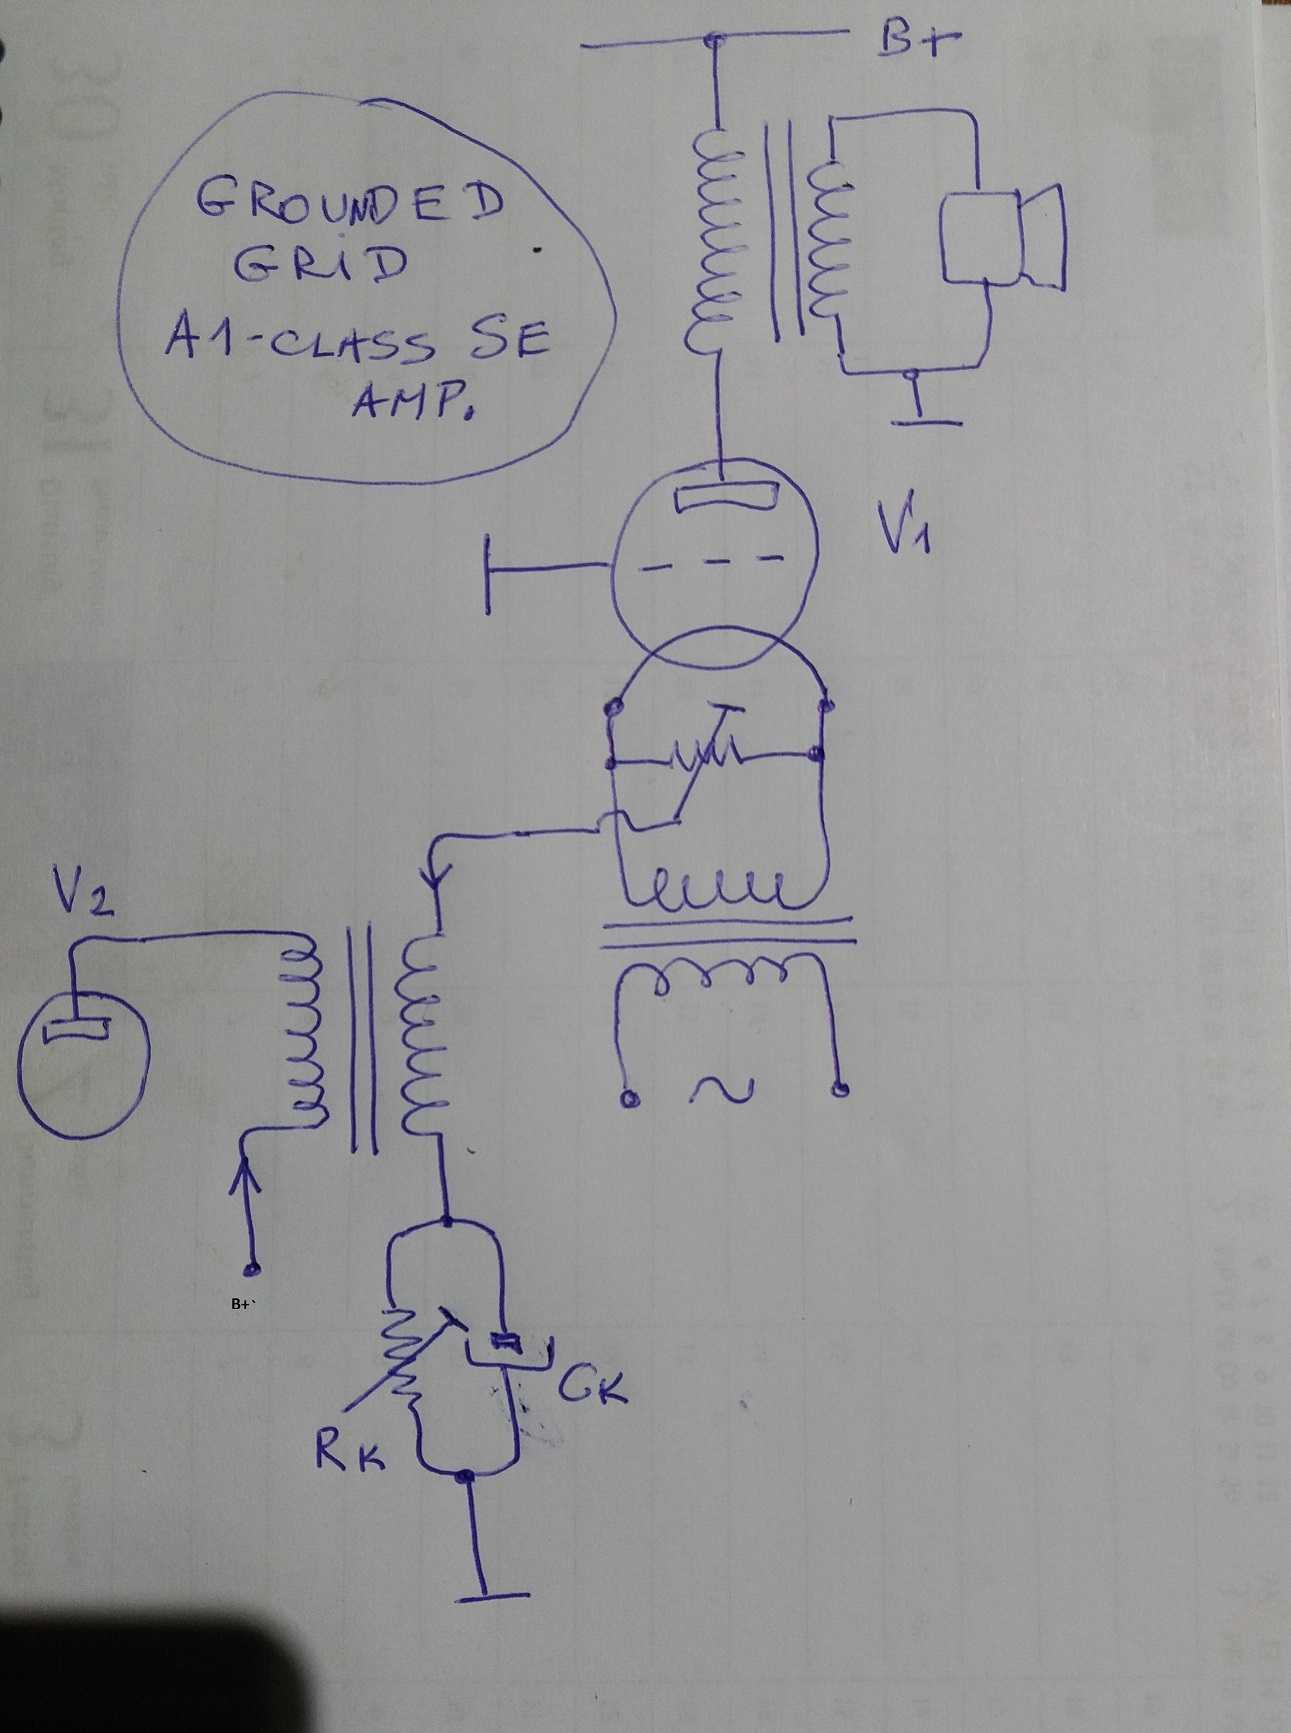 B+
GROUNDED
GRID
A1-CLASS SE
AMP.
V1
V2
B+`
CK
RK